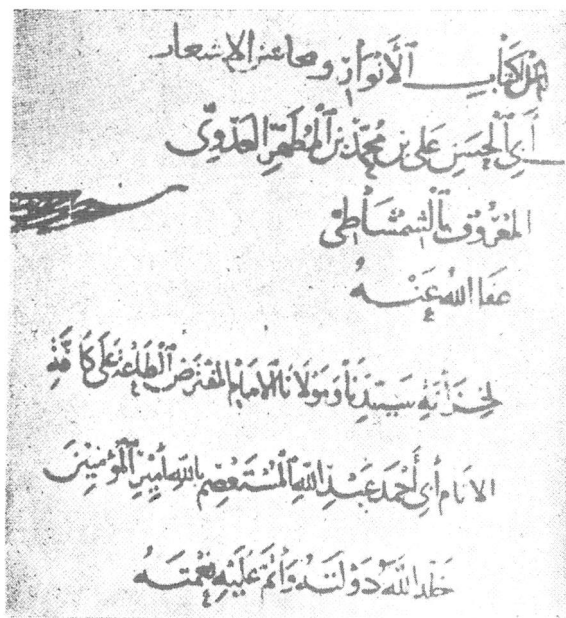 من كتاب الأنوار ومحاسن الاشعار
أبي الحسن علي بن محمد بن المطهر العدوي
المعروف بالشمشاطي
عفا الله عنه
لخزانة سيدنا ومولانا الامام المفترض الطاعة على كافة
الانام أبي أحمد عبد الله المستعصم بالله أمير المؤمنين
خلد الله دولته وأتم عليه نعمته